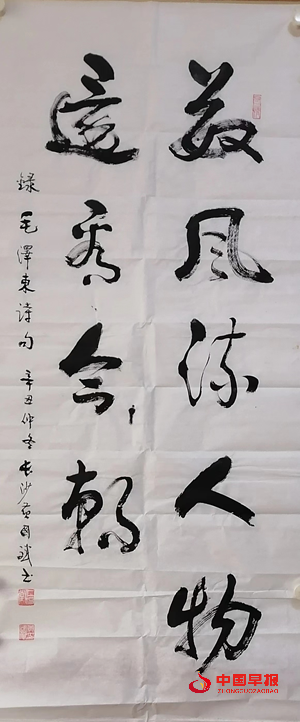 数风流人物
還看今朝
錄毛澤東诗句 辛丑仲冬长沙
中国早报
ZHONGGUOZAOBAO